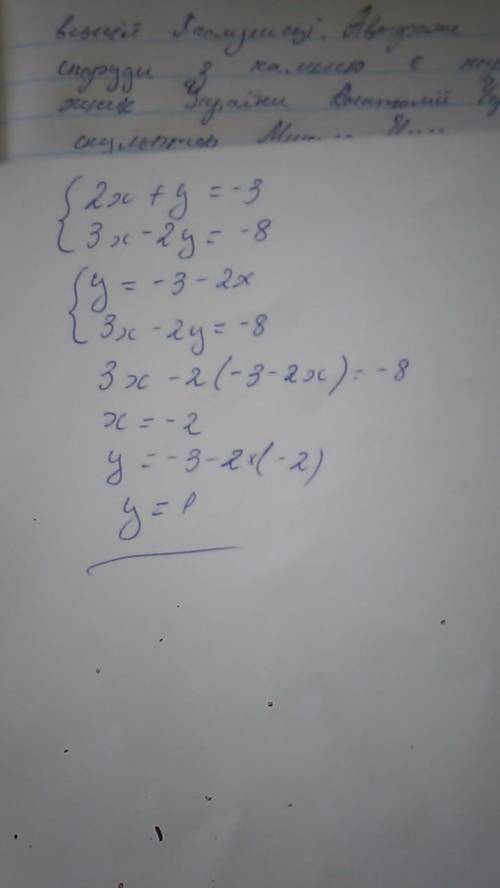 споруди з каменю є
України Анатолій
скульптор
2x + y = -3
3x - 2y = -8
y = -3 - 2x
3x - 2y = -8
3x - 2(-3-2x) = -8
x = -2
y = -3-2×(-2)
y = 1